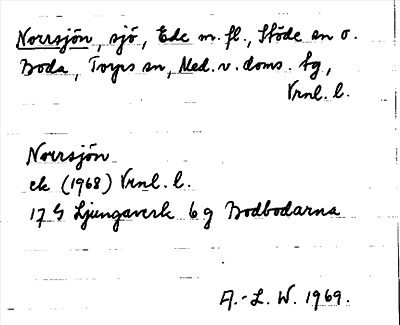 Norrsjön, sjö, Ede m.fl., Stöde sn o.
Boda, Torps sn, Med. v. doms. tg,
Vrnl. l.
Norrsjön
ek (1968) Vrnl. l.
17 G Ljungaverk 6 g Bodbodarna
A.-L. W. 1969.